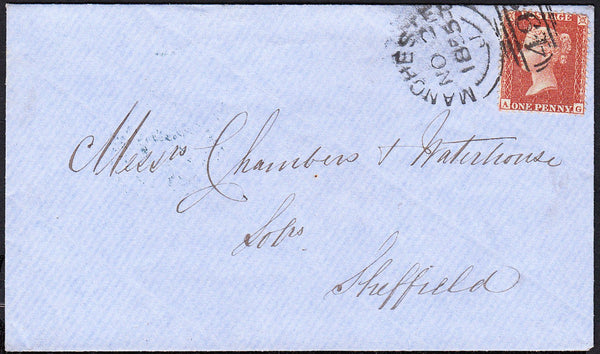 MANCHESTER
NO 2
185
J
POSTAGE
A ONE PENNY G
Messrs Chambers & Waterhouse
Solrs
Sheffield